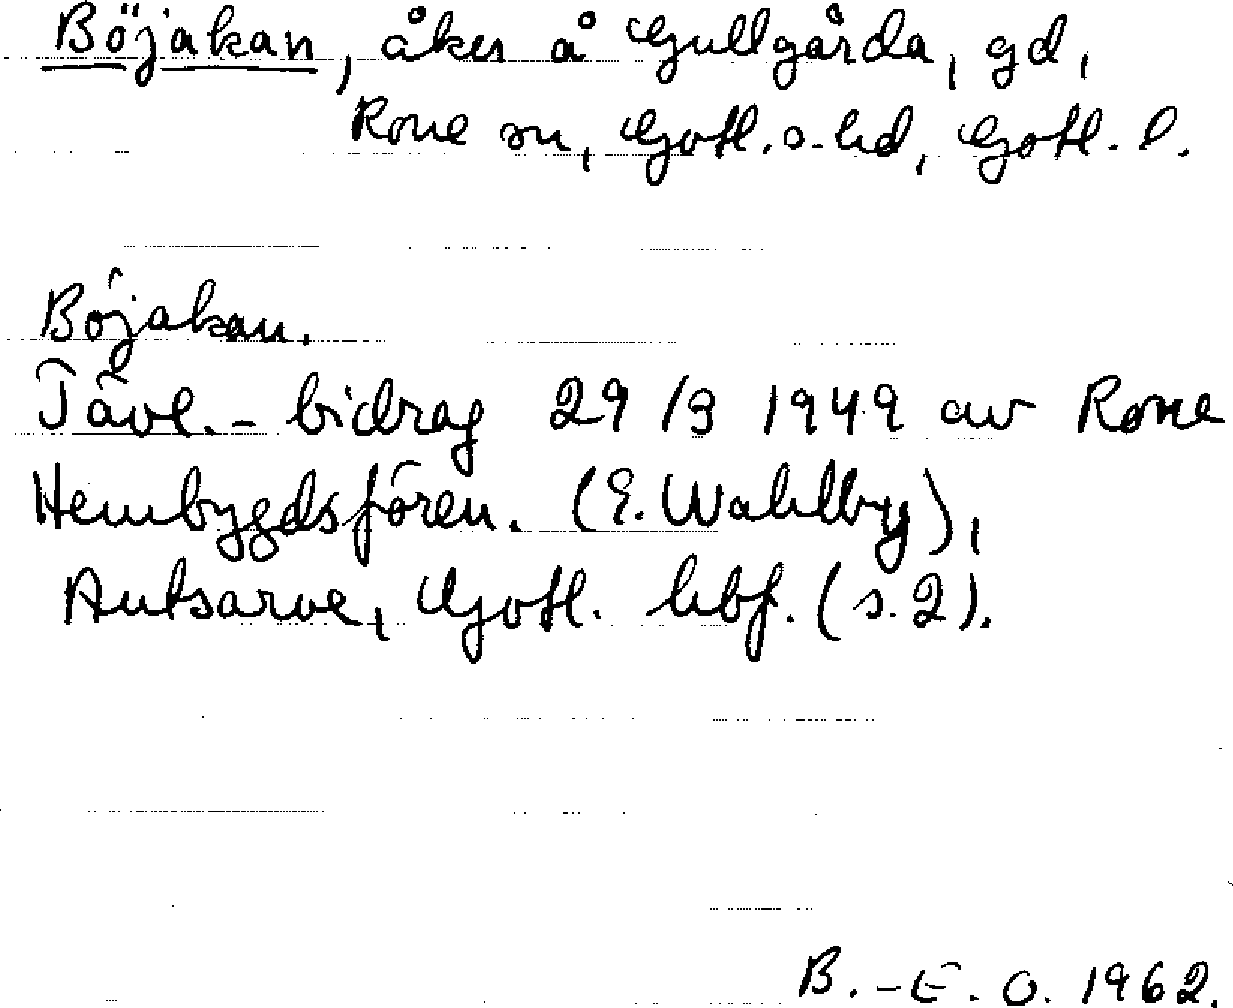 Böjakan, åker å Gullgårda, gd,
Rone sn, Gotl. s. hd, Gotl. l.
Böjakan.
Tävl.-bidrag 29/3 1949 av Rone
Hembygdsfören. (E. Wahlby),
Autsarve, Gotl. hbf. (s. 2).
B.-E. O. 1962.